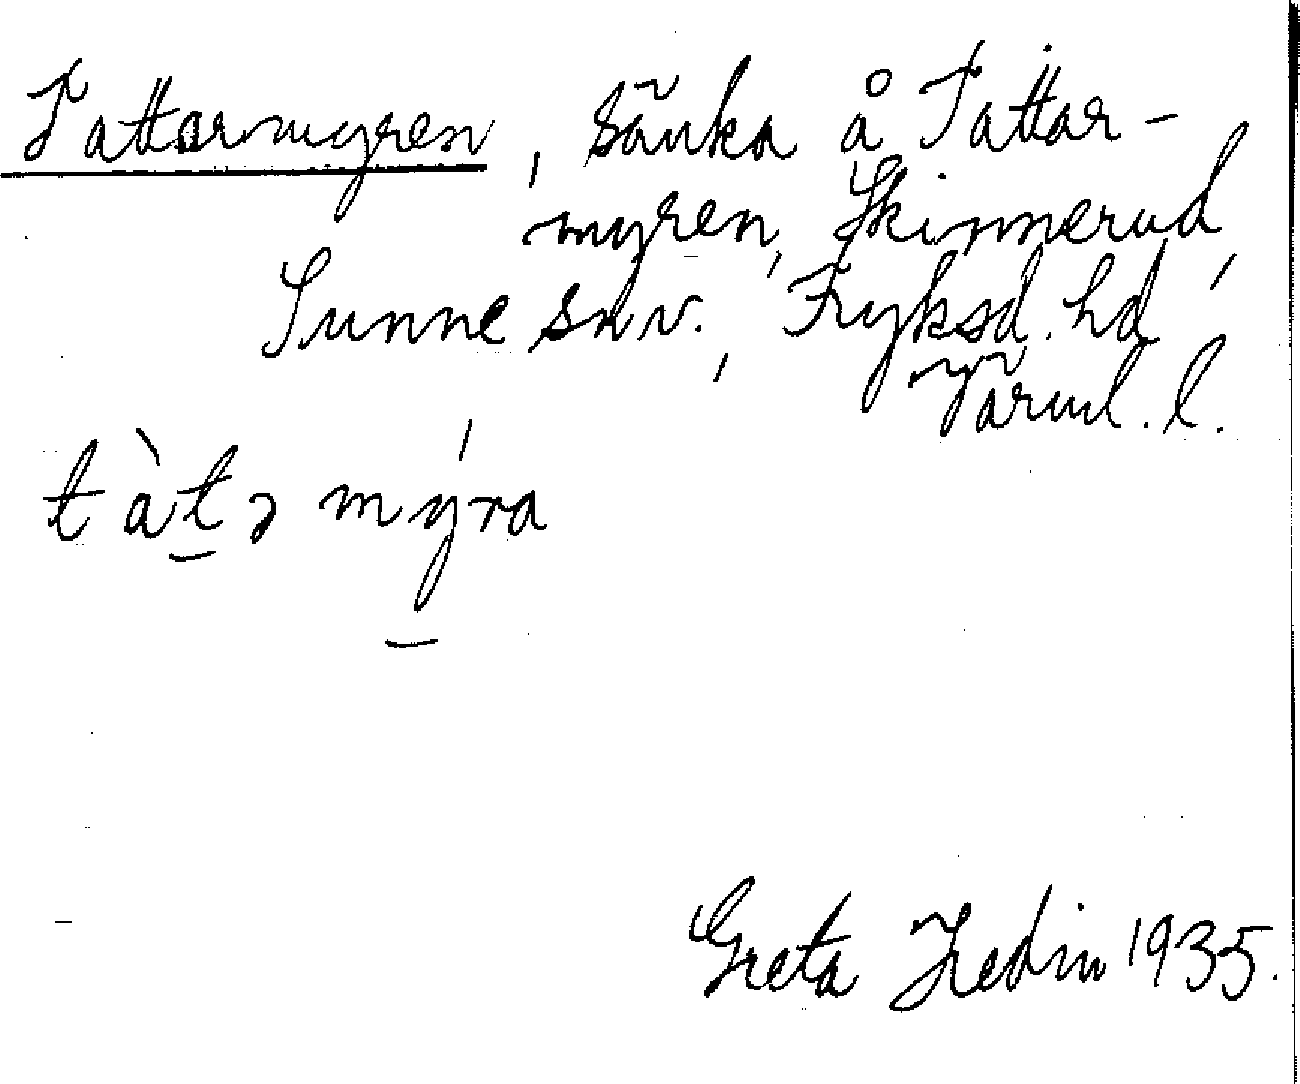 Tattarmyren, sänka å Tattar-
myren, Skinnerud,
Sunne snv., Fryksd. hd,
Värml. l.
tàt̲ə mýra
Greta Hedin 1935.